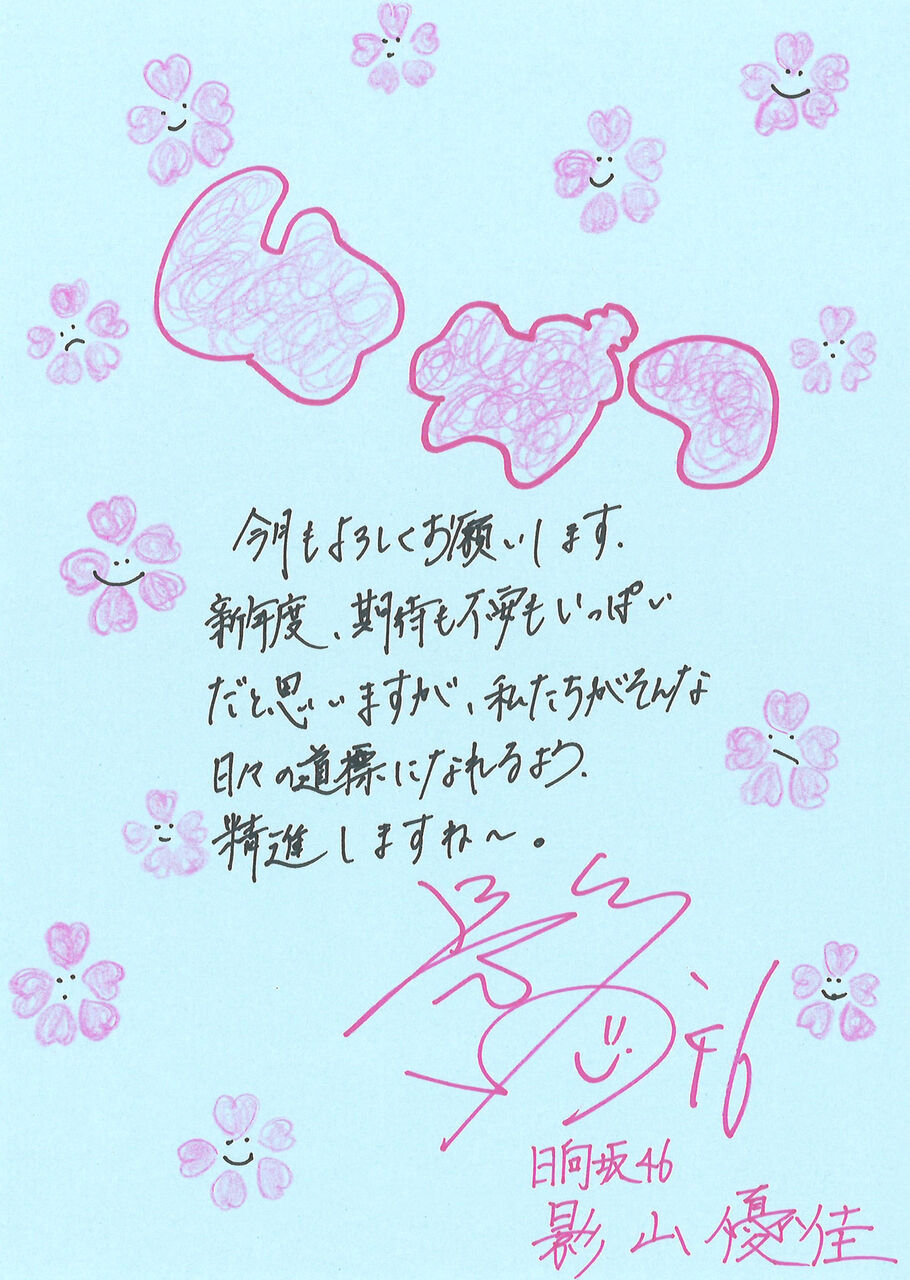 今月もよろしくお願いします.
新年度、期待も不安もいっぱい
だと思いますが、私たちがそんな
日々の道標になれるよう.
精進しますね〜。
46
日向坂46
影山優佳